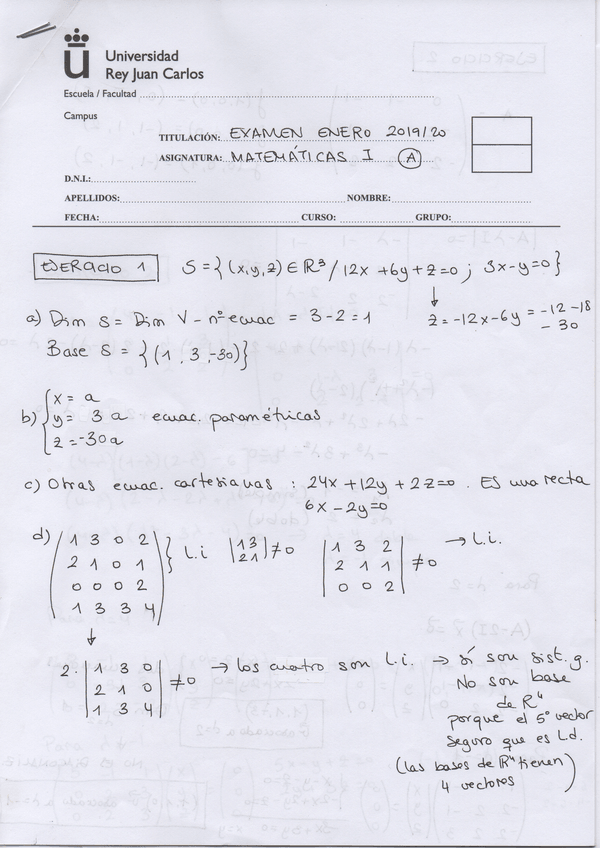 Universidad
Rey Juan Carlos
Escuela / Facultad
Campus
TITULACIÓN: EXAMEN ENERO 2019/20
ASIGNATURA: MATEMÁTICAS I (A)
D.N.I.:
APELLIDOS: NOMBRE:
FECHA: CURSO: GRUPO:
EJERCICIO 1 S = {(x,y,z) ∈ R³ / 12x + 6y + z = 0 ; 3x - y = 0}
↓
a) Dim S = Dim V - nº ecuac = 3 - 2 = 1 z = -12x - 6y = -12 - 18
- 30
Base S = {(1, 3, -30)}
b) { x = a
y = 3a ecuac. paramétricas
z = -30a
c) Otras ecuac. cartesianas : 24x + 12y + 2z = 0 . Es una recta
6x - 2y = 0
d) ( 1 3 0 2 ) } l.i |1 3| ≠ 0 | 1 3 2 | ≠ 0 → l.i.
2 1 0 1 |2 1| | 2 1 1 |
0 0 0 2 | 0 0 2 |
1 3 3 4
↓
2. | 1 3 0 | ≠ 0 → los cuatro son l.i. → sí son sist. g.
| 2 1 0 | No son base
| 1 3 4 | de R⁴
porque el 5º vector
seguro que es l.d.
(las bases de R⁴ tienen
4 vectores)